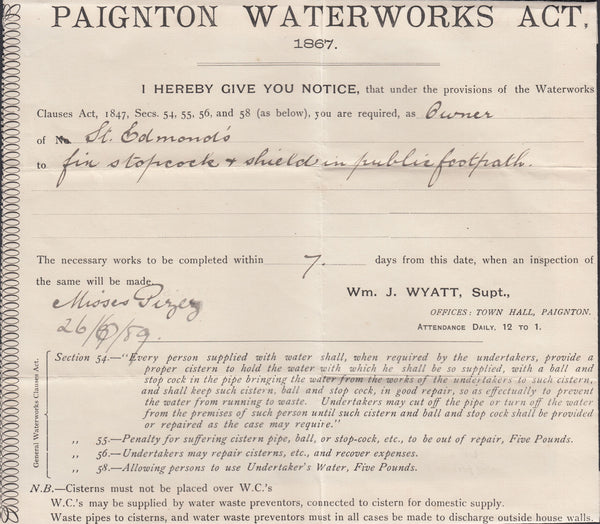 PAIGNTON WATERWORKS ACT,
1867.
I HEREBY GIVE YOU NOTICE, that under the provisions of the Waterworks
Clauses Act, 1847, Secs. 54, 55, 56, and 58 (as below), you are required, as Owner
of No St. Edmond's
to fix stopcock & shield in public footpath.
The necessary works to be completed within 7. days from this date, when an inspection of
the same will be made.
Misses
Wm. J. WYATT, Supt.,
26/6/89.
OFFICES: TOWN HALL, PAIGNTON.
ATTENDANCE DAILY. 12 TO 1.
General Waterworks Clauses Act.
Section 54.—"Every person supplied with water shall, when required by the undertakers, provide a
proper cistern to hold the water with which he shall be so supplied, with a ball and
stop cock in the pipe bringing the water from the works of the undertakers to such cistern,
and shall keep such cistern, ball and stop cock, in good repair, so as effectually to prevent
the water from running to waste. Undertakers may cut off the pipe or turn off the water
from the premises of such person until such cistern and ball and stop cock shall be provided
or repaired as the case may require."
„ 55.—Penalty for suffering cistern pipe, ball, or stop-cock, etc., to be out of repair, Five Pounds.
„ 56.—Undertakers may repair cisterns, etc., and recover expenses.
„ 58.—Allowing persons to use Undertaker's Water, Five Pounds.
N.B.—Cisterns must not be placed over W.C.'s
W.C.'s may be supplied by water waste preventors, connected to cistern for domestic supply.
Waste pipes to cisterns, and water waste preventors must in all cases be made to discharge outside house walls.